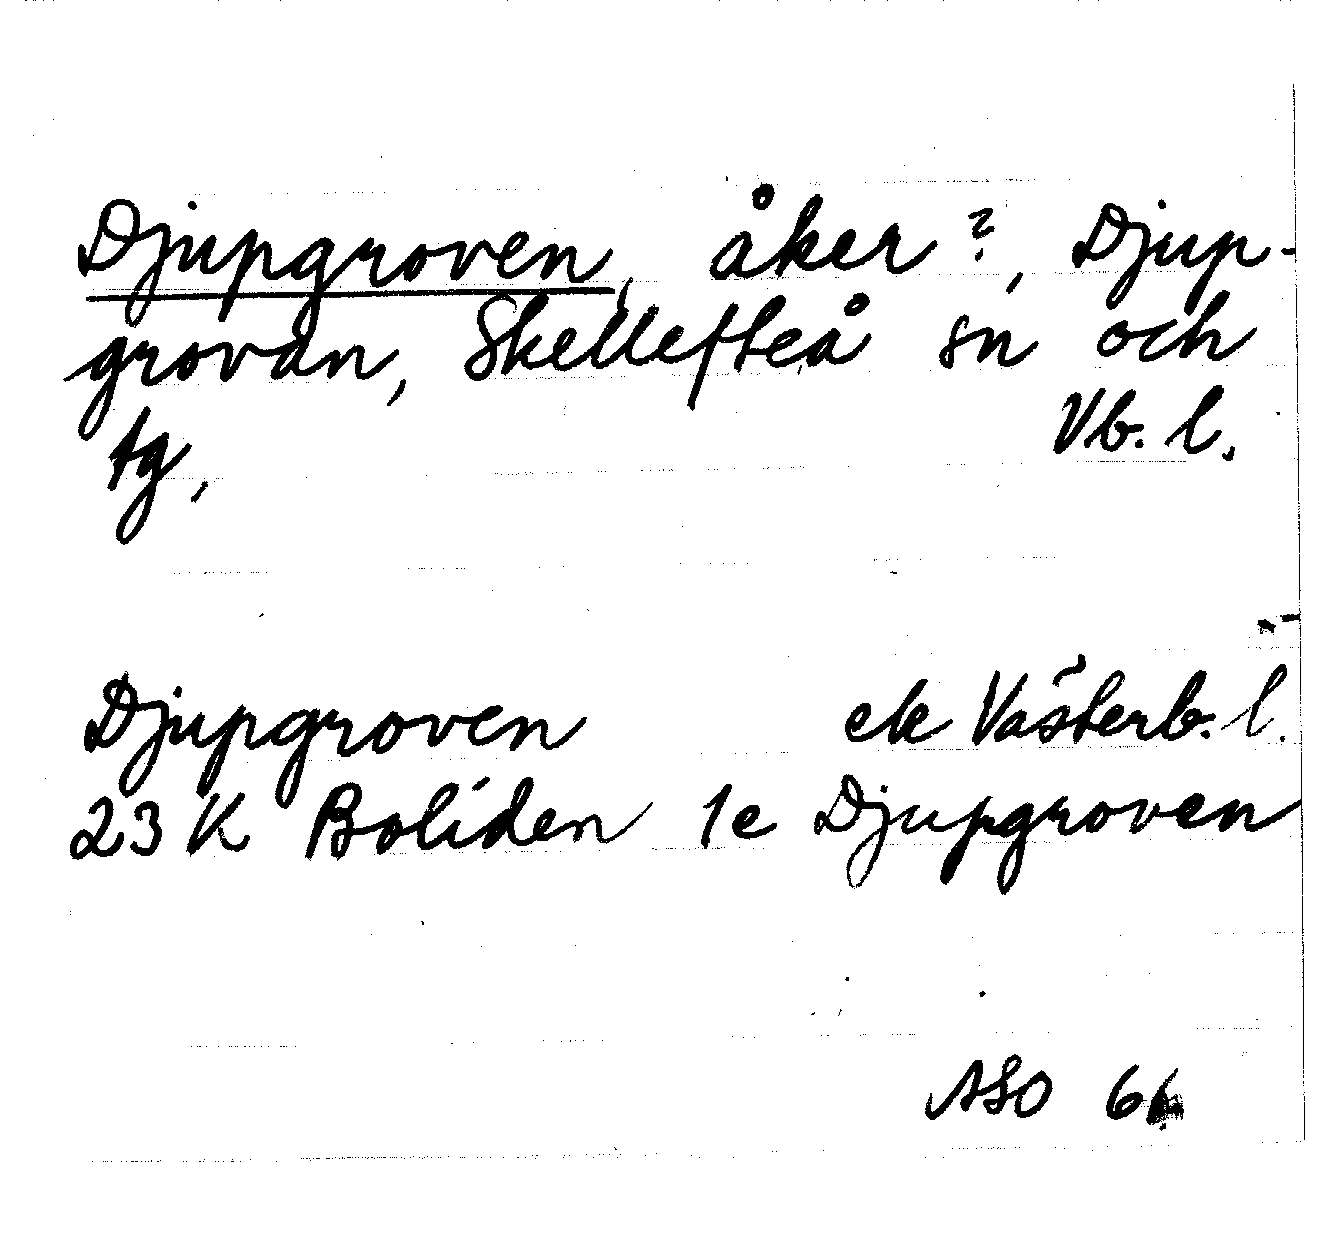 Djupgroven, åker?, Djup-
grovan, Skellefteå sn och
tg, Vb. l.
Djupgroven ek Västerb. l.
23 K Boliden 1e Djupgroven
ASO 66